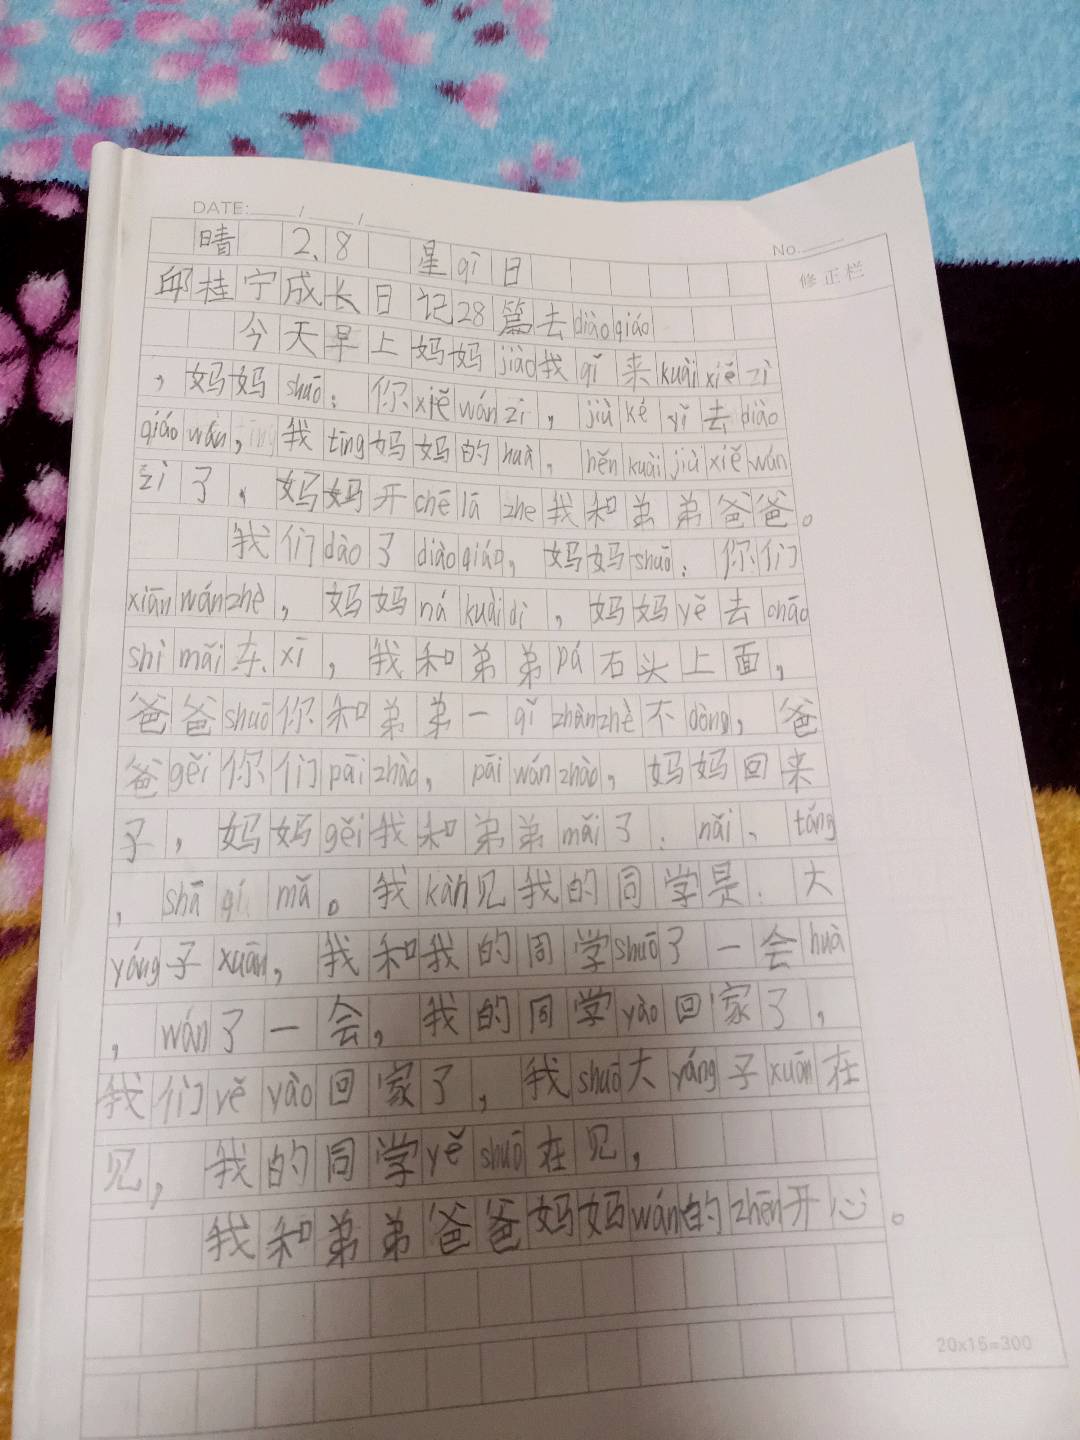 DATE: / /
No.
修正栏
晴 2.8 星qī日
邱桂宁成长日记28篇去diàoqiáo
今天早上妈妈jiào我qǐ来kuàixiězì
，妈妈shuō：你xiěwánzì，jiùkéyǐ去diào
qiáowán，我tīng妈妈的huà，hěnkuàijiùxiěwán
zì了，妈妈开chēlāzhe我和弟弟爸爸。
我们dào了diàoqiáo，妈妈shuō：你们
xiānwánzhè，妈妈nákuàidì，妈妈yě去chāo
shìmǎi东xī，我和弟弟pá石头上面，
爸爸shuō你和弟弟一qǐzhànzhè不dòng，爸
爸gěi你们pāizhào，pāiwánzhào，妈妈回来
子，妈妈gěi我和弟弟mǎi了：nǎi、táng
，shāqímǎ。我kàn见我的同学是：大
yáng子xuān，我和我的同学shuō了一会huà
，wán了一会，我的同学yào回家了，
我们yěyào回家了，我shuō大yáng子xuān在
见，我的同学yěshuō在见，
我和弟弟爸爸妈妈wán的zhēn开心。
20x15=300